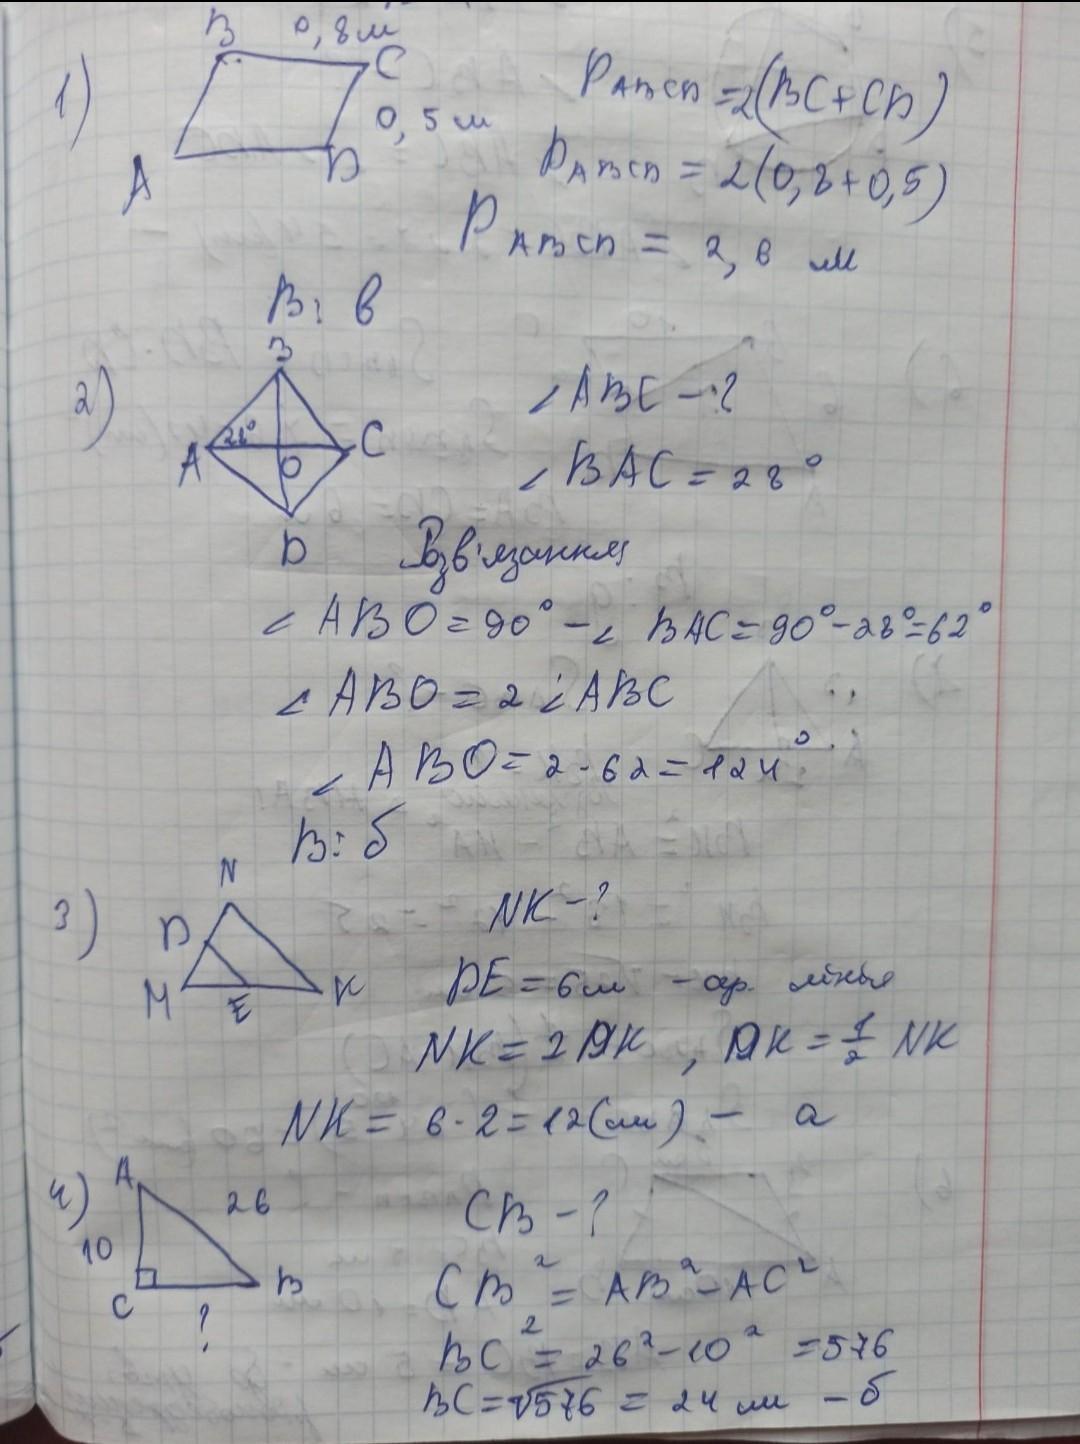 1)
B 0,8 м
C
0,5 м
A D
P ABCD = 2(BC + CD)
P ABCD = 2(0,8 + 0,5)
P ABCD = 2,6 м
В: в
2)
B
A 28° O C
D
∠ ABC - ?
∠ BAC = 28°
Розв'язання
∠ ABO = 90° - ∠ BAC = 90° - 28° = 62°
∠ ABO = 2 ∠ ABC
∠ ABO = 2 · 62 = 124°
В: б
3)
N
D
M E K
NK - ?
DE = 6 м - ср. лінія
NK = 2 DK , DK = 1/2 NK
NK = 6 · 2 = 12 (м) - а
4)
A
26
10
C B
?
CB - ?
CB² = AB² - AC²
BC² = 26² - 10² = 576
BC = √576 = 24 м - б